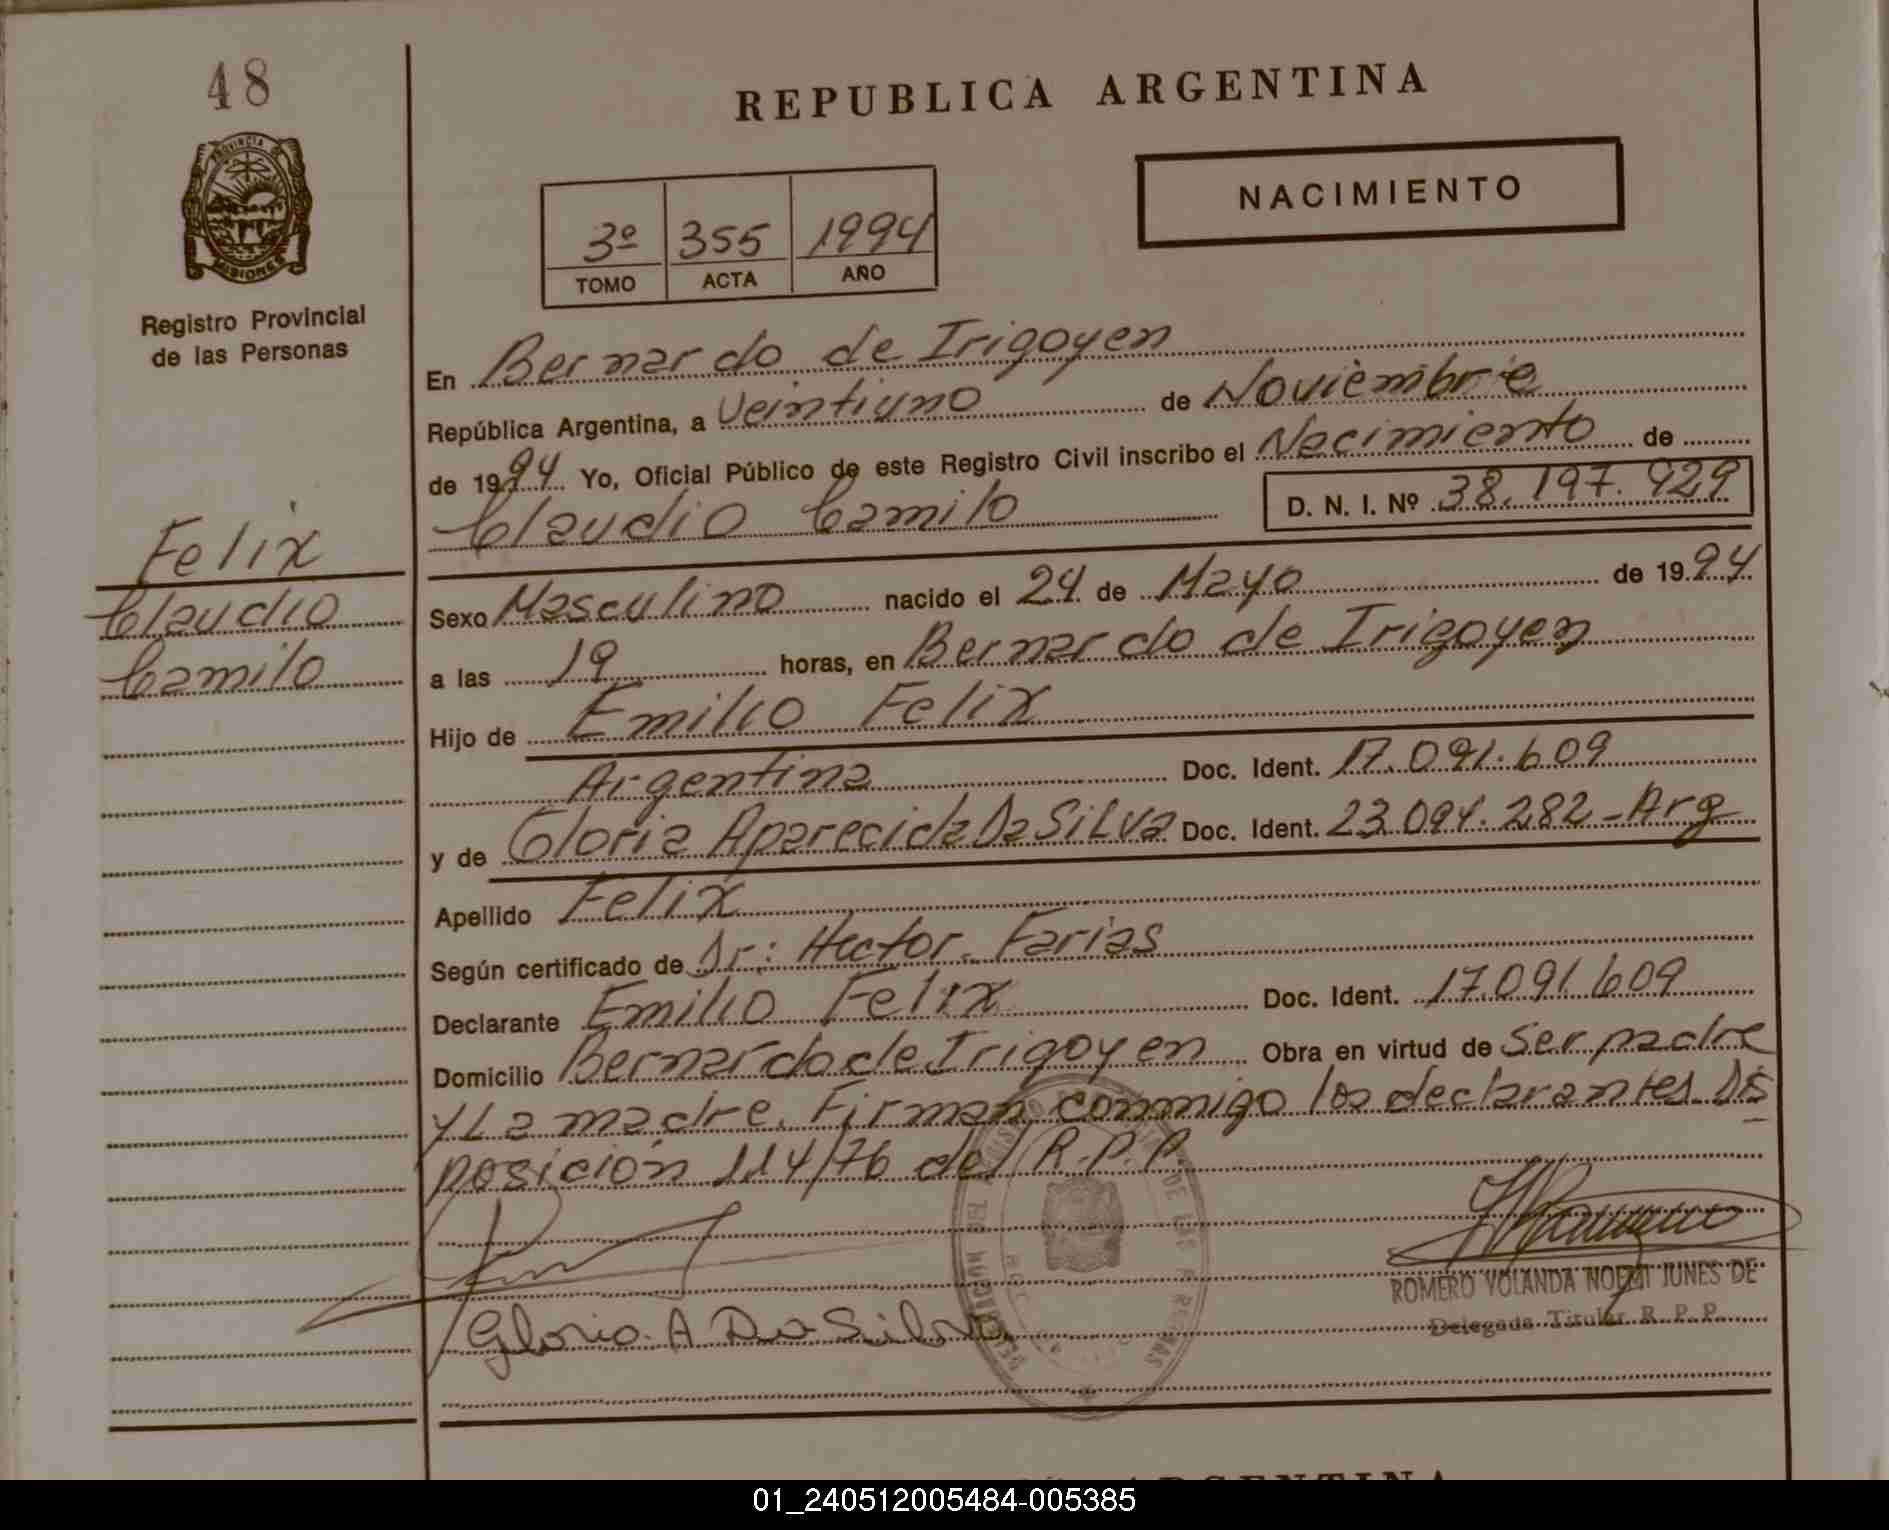 48
REPUBLICA ARGENTINA
PROVINCIA DE
MISIONES
Registro Provincial
de las Personas
NACIMIENTO
3º 355 1994
TOMO ACTA AÑO
En Bernardo de Irigoyen
República Argentina, a Veintiuno de Noviembre
de 1994 Yo, Oficial Público de este Registro Civil inscribo el Nacimiento de
Claudio Camilo D. N. I. Nº 38.197.929
Felix
Claudio
Camilo
Sexo Masculino nacido el 24 de Mayo de 1994
a las 19 horas, en Bernardo de Irigoyen
Hijo de Emilio Felix
Argentina Doc. Ident. 17.091.609
y de Gloria Aparecida Da Silva Doc. Ident. 23.094.282 - Arg
Apellido Felix
Según certificado de Dr: Hector Farias
Declarante Emilio Felix Doc. Ident. 17.091.609
Domicilio Bernardo de Irigoyen Obra en virtud de ser padre
y La madre. Firman conmigo los declarantes. Dis
posición 114/76 del R.P.P.
ROMERO YOLANDA NOEMI JUNES DE
Delegada Titular R. P. P.
Gloria A Da Silva
ARGENTINA
01_240512005484-005385